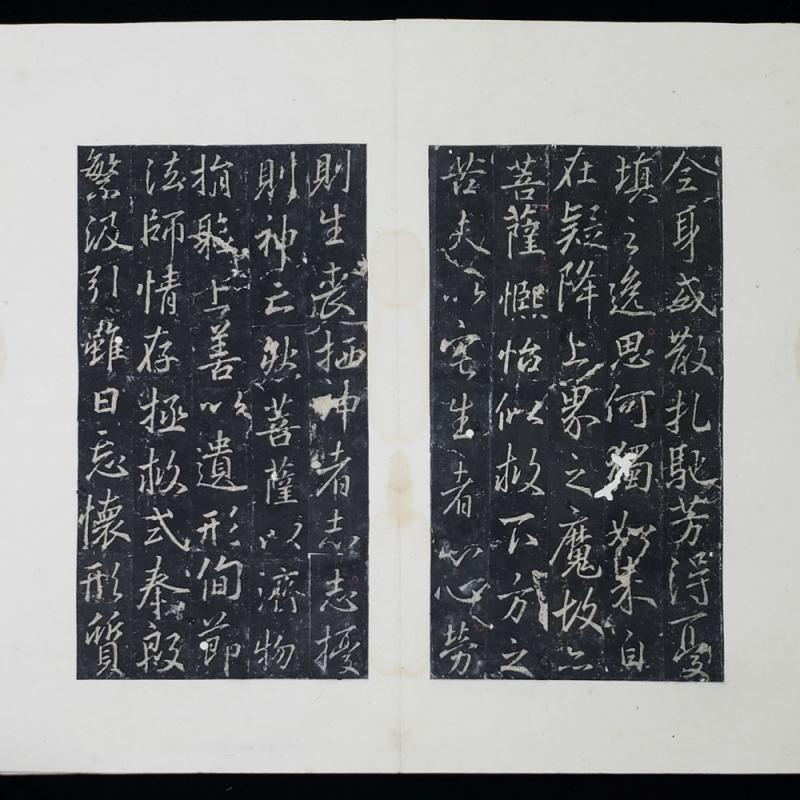 全身或散扎馳芳得憂
填之逸思何獨妙來自
在疑降上界之魔故亦
菩薩熙怡似救下方之
苦夫以宅生者心心勞
則生喪栖神者志志擾
則神亡然菩薩以濟物
捐軀上善以遺形徇節
法師情存拯救式奉殷
繁汲引雖曰忘懷形質